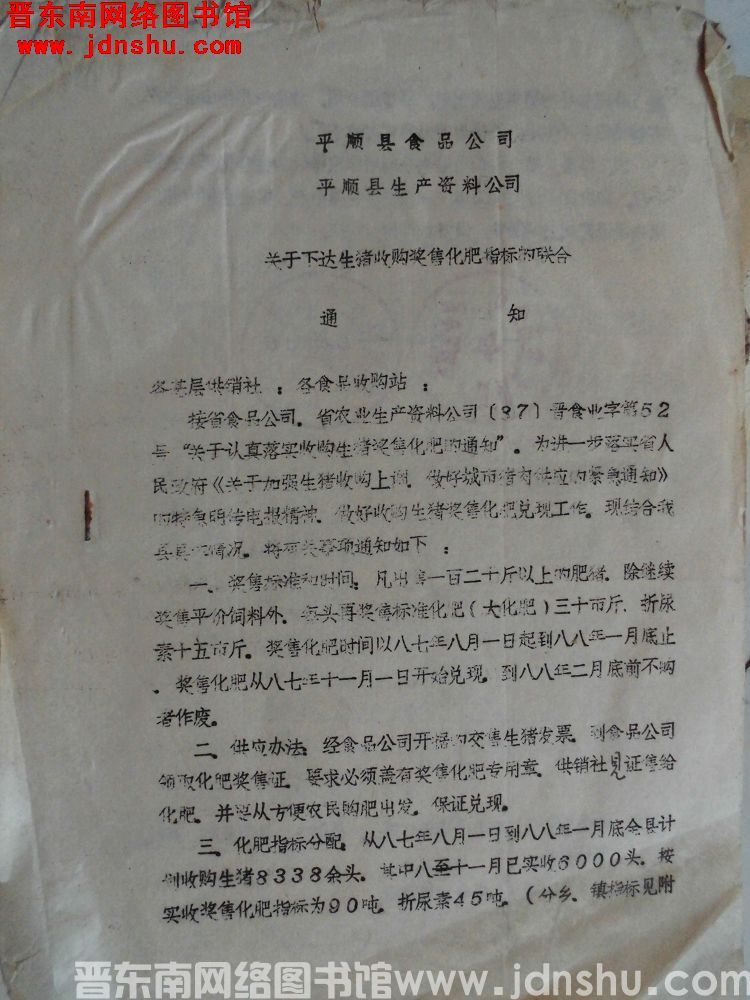 晋东南网络图书馆
www.jdnshu.com
平顺县食品公司
平顺县生产资料公司
关于下达生猪收购奖售化肥指标的联合
通知
各基层供销社：各食品收购站：
按省食品公司．省农业生产资料公司〔87〕晋食业字第52
号“关于认真落实收购生猪奖售化肥的通知”．为进一步落实省人
民政府《关于加强生猪收购上调．做好城市猪肉供应的紧急通知》
的特急明传电报精神．做好收购生猪奖售化肥兑现工作．现结合我
县具体情况．将有关事项通知如下：
一、奖售标准和时间：凡出售一百二十斤以上的肥猪．除继续
奖售平价饲料外．每头再奖售标准化肥(大化肥)三十市斤．折尿
素十五市斤．奖售化肥时间以八七年八月一日起到八八年一月底止
．奖售化肥从八七年十一月一日开始兑现．到八八年二月底前不购
者作废．
二、供应办法：经食品公司开据的交售生猪发票．到食品公司
领取化肥奖售证．要求必须盖有奖售化肥专用章．供销社见证售给
化肥．并要从方便农民购肥出发．保证兑现．
三、化肥指标分配．从八七年八月一日到八八年一月底全县计
划收购生猪8338余头．其中八至十一月已实收6000头．按
实收奖售化肥指标为90吨．折尿素45吨．(分乡、镇指标见附
晋东南网络图书馆www.jdnshu.com